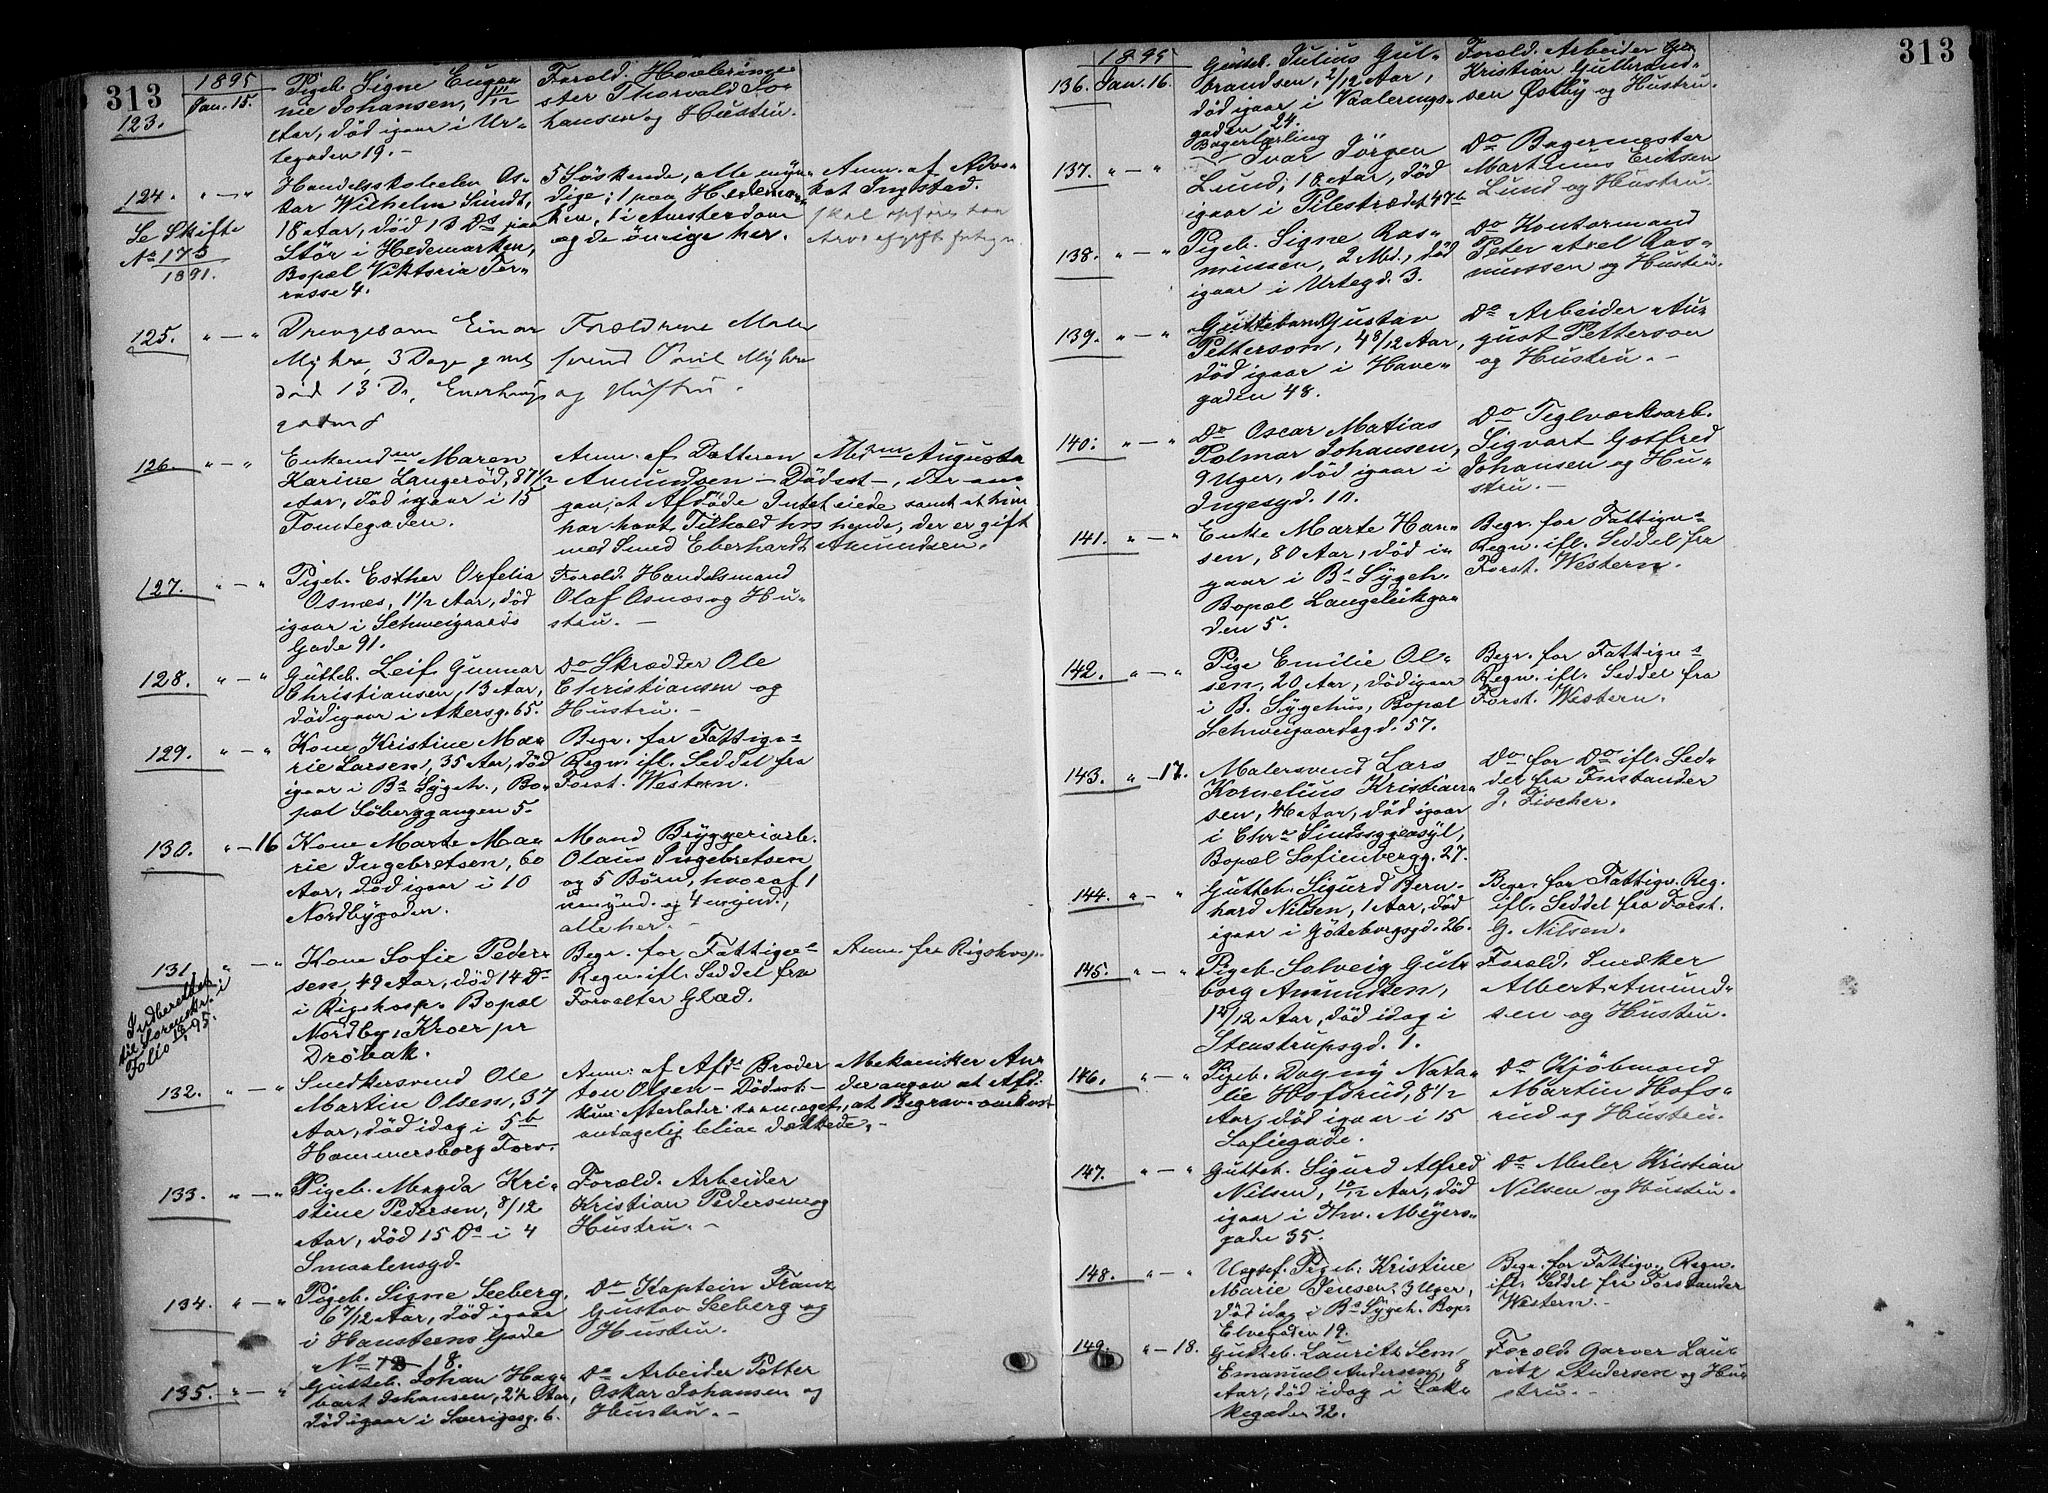 313
1895
123.
Jan. 15.
Pigeb. Signe Euge-
nie Johansen, 11/12
Aar, død igaar i Ur-
tegaden 19. -
Foræld.
ster Thorvald Jo-
hansen og Hustru.
124. " - "
Se Skifte
No 175
1891.
Handelsskoleelev Os-
car Wilhelm Sundt,
18 Aar, død 13 Ds paa
Stör i Hedemarken,
Bopæl Viktoria Ter-
rasse 4.
5 Söskende, alle myn-
dige; 1 paa Hedemar-
ken, 1 i Amsterdam
og de övrige her.
Anm. af Advo-
kat Ingstad.
skal opføres
125. " - "
Drengebarn Einar
Myhre, 3 Dage gml
død 13 Ds, Enerhaug-
gaden 8
Forældrene Maler-
svend Emil Myhre
og Hustru.
126. " - "
Enkemdm Maren
Karine Langeröd, 87 1/2
Aar, död igaar i 15
Tomtegaden.
Anm. af Datteren Mdm Augusta
Amundsen - Dödsst -, der an-
gav, at Afdöde Intet eiede samt at hun
har havt Tilhold hos hende, der er gift
med Smed Eberhardt Amundsen.
127. " - "
Pigeb. Esther Orfelia
Osnæs, 1 1/2 Aar, död
igaar i Schweigaards
Gade 91.
Foræld. Handelsmand
Olaf Osnæs og Hu-
stru. -
128. " - "
Gutteb. Leif Gunnar
Christiansen, 13 Aar,
död igaar i Akersg. 65.
Do Skrædder Ole
Christiansen og
Hustru. -
129. " - "
Kone Kristine Ma-
rie Larsen, 35 Aar, död
igaar i Bs Sygeh., Bo-
pæl Söberggangen 5.
Begr. for Fattigvs
Regn. ifl. Seddel fra
Forst. Western.
130. " - 16
Kone Marte Ma-
rie Ingebretsen, 60
Aar, död igaar i 10
Nordbygaden.
Mand Bryggeriarb.
Olaus Ingebretsen
og 5 Börn, hvoraf 1
umynd. og 4 mynd.,
alle her. -
131. " - "
Indberettet
til Sorenskr. i
Follo 95.
Kone Sofie Peder-
sen, 49 Aar, död 14 Ds
i Rigshosp. Bopæl
Nordby, Kroer pr
Dröbak.
Begr. for Fattigvs
Regn. ifl. Seddel fra
Forvalter Glad.
Anm. fra Rigshosp.
132. " - "
Snedkersvend Ole
Martin Olsen, 37
Aar, död idag i 5b
Hammersborg Torv.
Anm. af Afds Broder Mekaniker An-
ton Olsen - Dödsst - der angav at Afd.
kun efterlader saameget, at Begrav.omkost
antagelig blive dækkede. -
133. " - "
Pigeb. Magda Kri-
stine Pedersen, 8/12
Aar, död 15 Ds i 4
Smaalensgd.
Foræld. Arbeider
Kristian Pedersen og
Hustru. -
134. " - "
Pigeb. Signe Seeberg,
6 7/12 Aar, död igaar
i Hansteens Gade
No 18.
Do Kaptein Franz
Gustav Seeberg og
Hustru.
135. " - "
Gutteb. Johan Hag-
bart Johansen, 2 1/2 Aar,
död igaar i Sverigesg. 6.
Do Arbeider Petter
Oskar Johansen og
Hustru. -
313
1895
136. Jan. 16.
Gutteb. Julius Gul-
brandsen, 2/12 Aar,
död igaar i Vaalerengs-
gaden 24.
Foræld. Arbeider
Kristian Gulbrand-
sen Østby og Hustru.
137. " - "
Bagerlærling
Ivar Jörgen
Lund, 18 Aar, död
igaar i Pilestrædet 47b
Do Bagermester
Martinus Eriksen
Lund og Hustru.
138. " - "
Pigeb. Signe Ras-
mussen, 2 Md., död
igaar i Urtegd. 3.
Do Kontormand
Peter Axel Ras-
mussen og Hustru.
139. " - "
Guttebarn Gustav
Petterson, 4 8/12 Aar,
död igaar i Have-
gaden 48.
Do Arbeider Au-
gust Petterson
og Hustru. -
140. " - "
Do Oscar Matias
Polmar Johansen,
9 Uger, död igaar i
Ingesgd. 10.
Do Teglværksarb.
Sigvart Gotfred
Johansen og Hu-
stru. -
141. " - "
Enke Marte Han-
sen, 80 Aar, död i-
gaar i Bs Sygeh.
Bopæl Langeleikga-
den 5.
Begr. for Fattigvs
Regn. ifl. Seddel fra
Forst. Western.
142. " - "
Pige Emilie Ol-
sen, 20 Aar, död igaar
i B. Sygehus, Bopæl
Schweigaardsgd. 57.
Begr. for Fattigvs
Regn. ifl. Seddel fra
Forst. Western.
143. " - 17.
Malersvend Lars
Kornelius Kristian-
sen, 46 Aar, död igaar
i Chra Sindssygeasyl,
Bopæl Sofienbergg. 27.
Do for Do ifl. Sed-
del fra Forstander
J. Fischer.
144. " - "
Gutteb. Sigurd Bern-
hard Nilsen, 1 Aar, död
igaar i Göteborggd. 26.
Begr. for Fattigv. Reg.
ifl. Seddel fra Forst.
G. Nilsen.
145. " - "
Pigeb. Solveig Gul-
borg Amundsen,
1 2/12 Aar, död idag i
Stenstrupsgd. 1.
Foræld. Snedker
Albert Amund-
sen og Hustru.
146. " - "
Pigeb. Dagny Nata-
lie Hofsrud, 8 1/2
Aar, död igaar i 15
Sofiegade.
Do Kjöbmand
Martin Hofs-
rud og Hustru.
147. " - "
Gutteb. Sigurd Alfred
Nilsen, 10/12 Aar, död
igaar i Thv. Meyers-
gade 35.
Do Maler Kristian
Nilsen og Hustru. -
148. " - "
Uægtef. Pigeb. Kristine
Marie Jensen, 3 Uger,
död idag i Bs Sygeh. Bop.
Elvegaden 19.
Begr. for Fattigv. Regn.
ifl. Seddel fra Forstander
Western. -
149. " - 18.
Gutteb. Lauritz Sem
Emanuel Andersen, 8
Aar, död idag i Lak-
kegaden 32.
Foræld. Garver Lau-
ritz Andersen og Hu-
stru. -